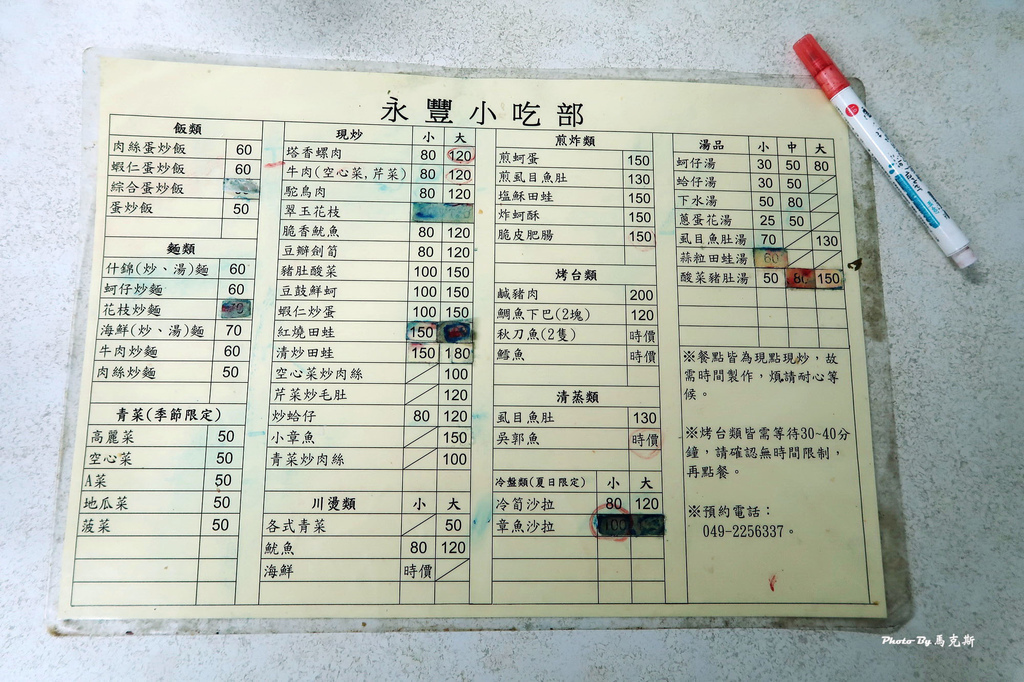 永豐小吃部
飯類
肉絲蛋炒飯 60
蝦仁蛋炒飯 60
綜合蛋炒飯
蛋炒飯 50
麵類
什錦(炒、湯)麵 60
蚵仔炒麵 60
花枝炒麵 70
海鮮(炒、湯)麵 70
牛肉炒麵 60
肉絲炒麵 50
青菜(季節限定)
高麗菜 50
空心菜 50
A菜 50
地瓜菜 50
菠菜 50
現炒 小 大
塔香螺肉 80 120
牛肉(空心菜,芹菜) 80 120
駝鳥肉 80 120
翠玉花枝
脆香魷魚 80 120
豆瓣劍筍 80 120
豬肚酸菜 100 150
豆鼓鮮蚵 100 150
蝦仁炒蛋 100 150
紅燒田蛙 150
清炒田蛙 150 180
空心菜炒肉絲 100
芹菜炒毛肚 120
炒蛤仔 80 120
小章魚 150
青菜炒肉絲 100
川燙類 小 大
各式青菜 50
魷魚 80 120
海鮮 時價
煎炸類
煎蚵蛋 150
煎虱目魚肚 130
塩酥田蛙 150
炸蚵酥 150
脆皮肥腸 150
烤台類
鹹豬肉 200
鯛魚下巴(2塊) 120
秋刀魚(2隻) 時價
鱈魚 時價
清蒸類
虱目魚肚 130
吳郭魚 時價
冷盤類(夏日限定) 小 大
冷筍沙拉 80 120
章魚沙拉 100
湯品 小 中 大
蚵仔湯 30 50 80
蛤仔湯 30 50
下水湯 50 80
蔥蛋花湯 25 50
虱目魚肚湯 70 130
蒜粒田蛙湯 60
酸菜豬肚湯 50 80 150
※餐點皆為現點現炒，故
需時間製作，煩請耐心等
候。
※烤台類皆需等待30~40分
鐘，請確認無時間限制，
再點餐。
※預約電話：
049-2256337。
Photo By 馬克斯